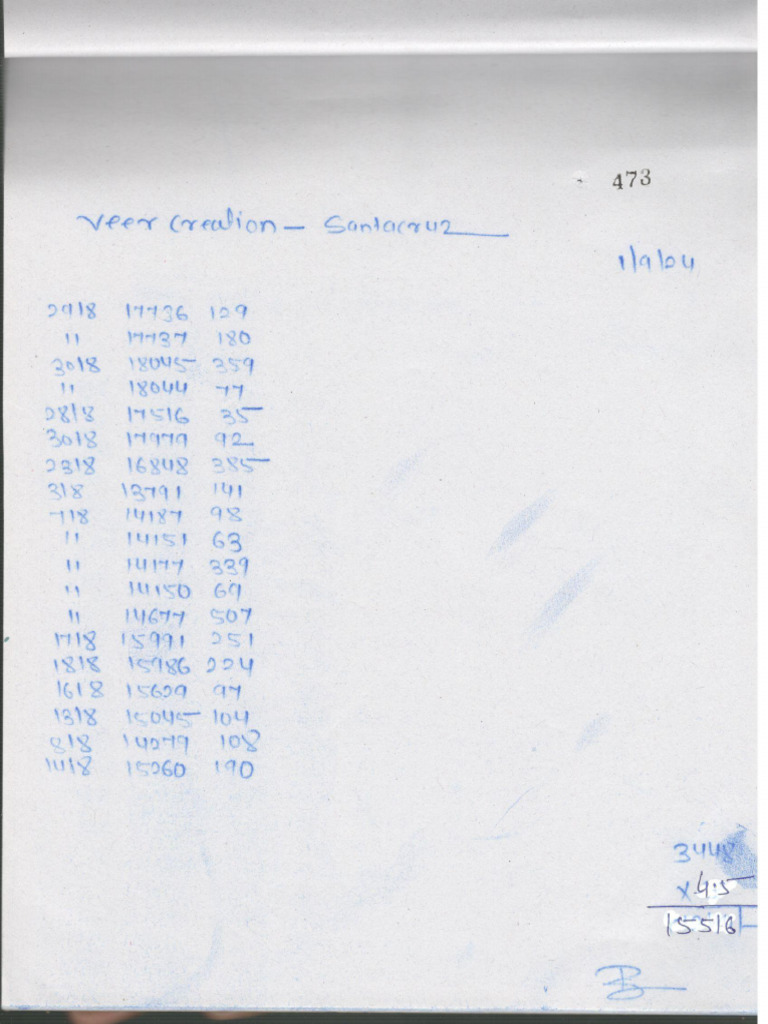 473
Veer Creation - Santacruz
1/9/24
29/8 17736 129
" 17737 180
30/8 18045 359
" 18044 77
28/8 17516 35
30/8 17979 92
23/8 16848 385
3/8 13791 141
7/8 14187 98
" 14151 63
" 14177 339
" 14150 69
" 14677 507
17/8 15991 251
18/8 15986 224
16/8 15629 97
13/8 15045 104
8/8 14279 108
14/8 15260 190
3448
x 4.5
15516/-